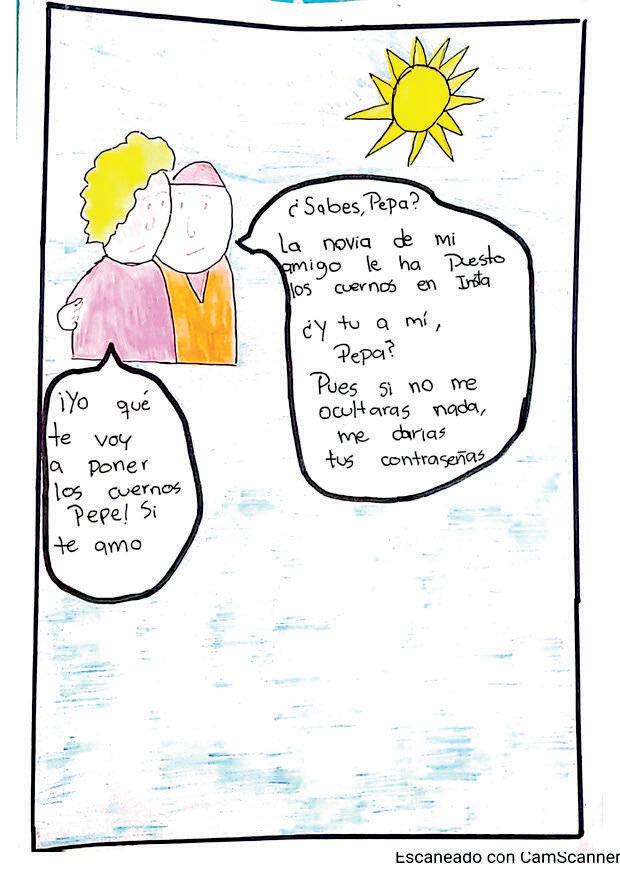 ¿Sabes, Pepa?
La novia de mi
amigo le ha puesto
los cuernos en Insta
¿Y tu a mí,
Pepa?
Pues si no me
ocultaras nada,
me darias
tus contraseñas
¡Yo qué
te voy
a poner
los cuernos
Pepe! Si
te amo
Escaneado con CamScanner